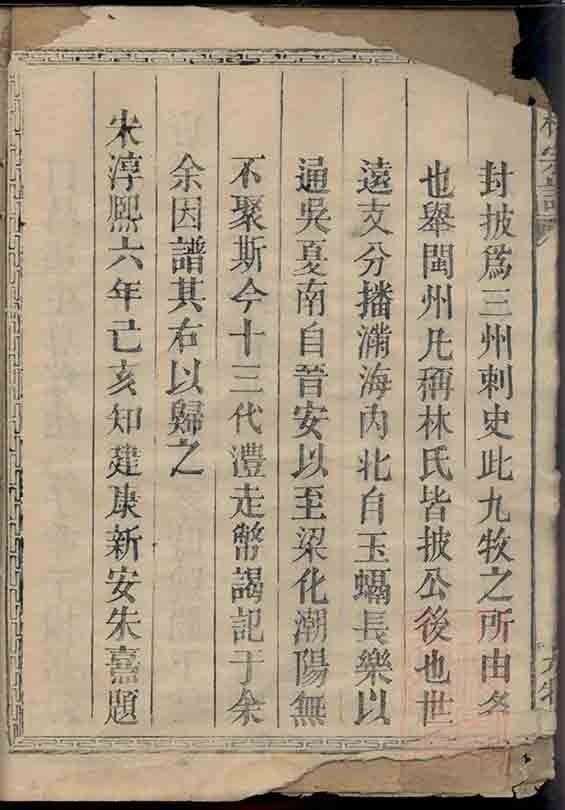 封披爲三州刺史此九牧之所由名
也舉閩州凡稱林氏皆披公後也世
遠支分播滿海內北自玉螎長樂以
通吳夏南自晋安以至梁化潮陽無
不聚斯今十三代澧走幣謁記于余
余因譜其右以歸之
宋淳熙六年己亥知建康新安朱熹題